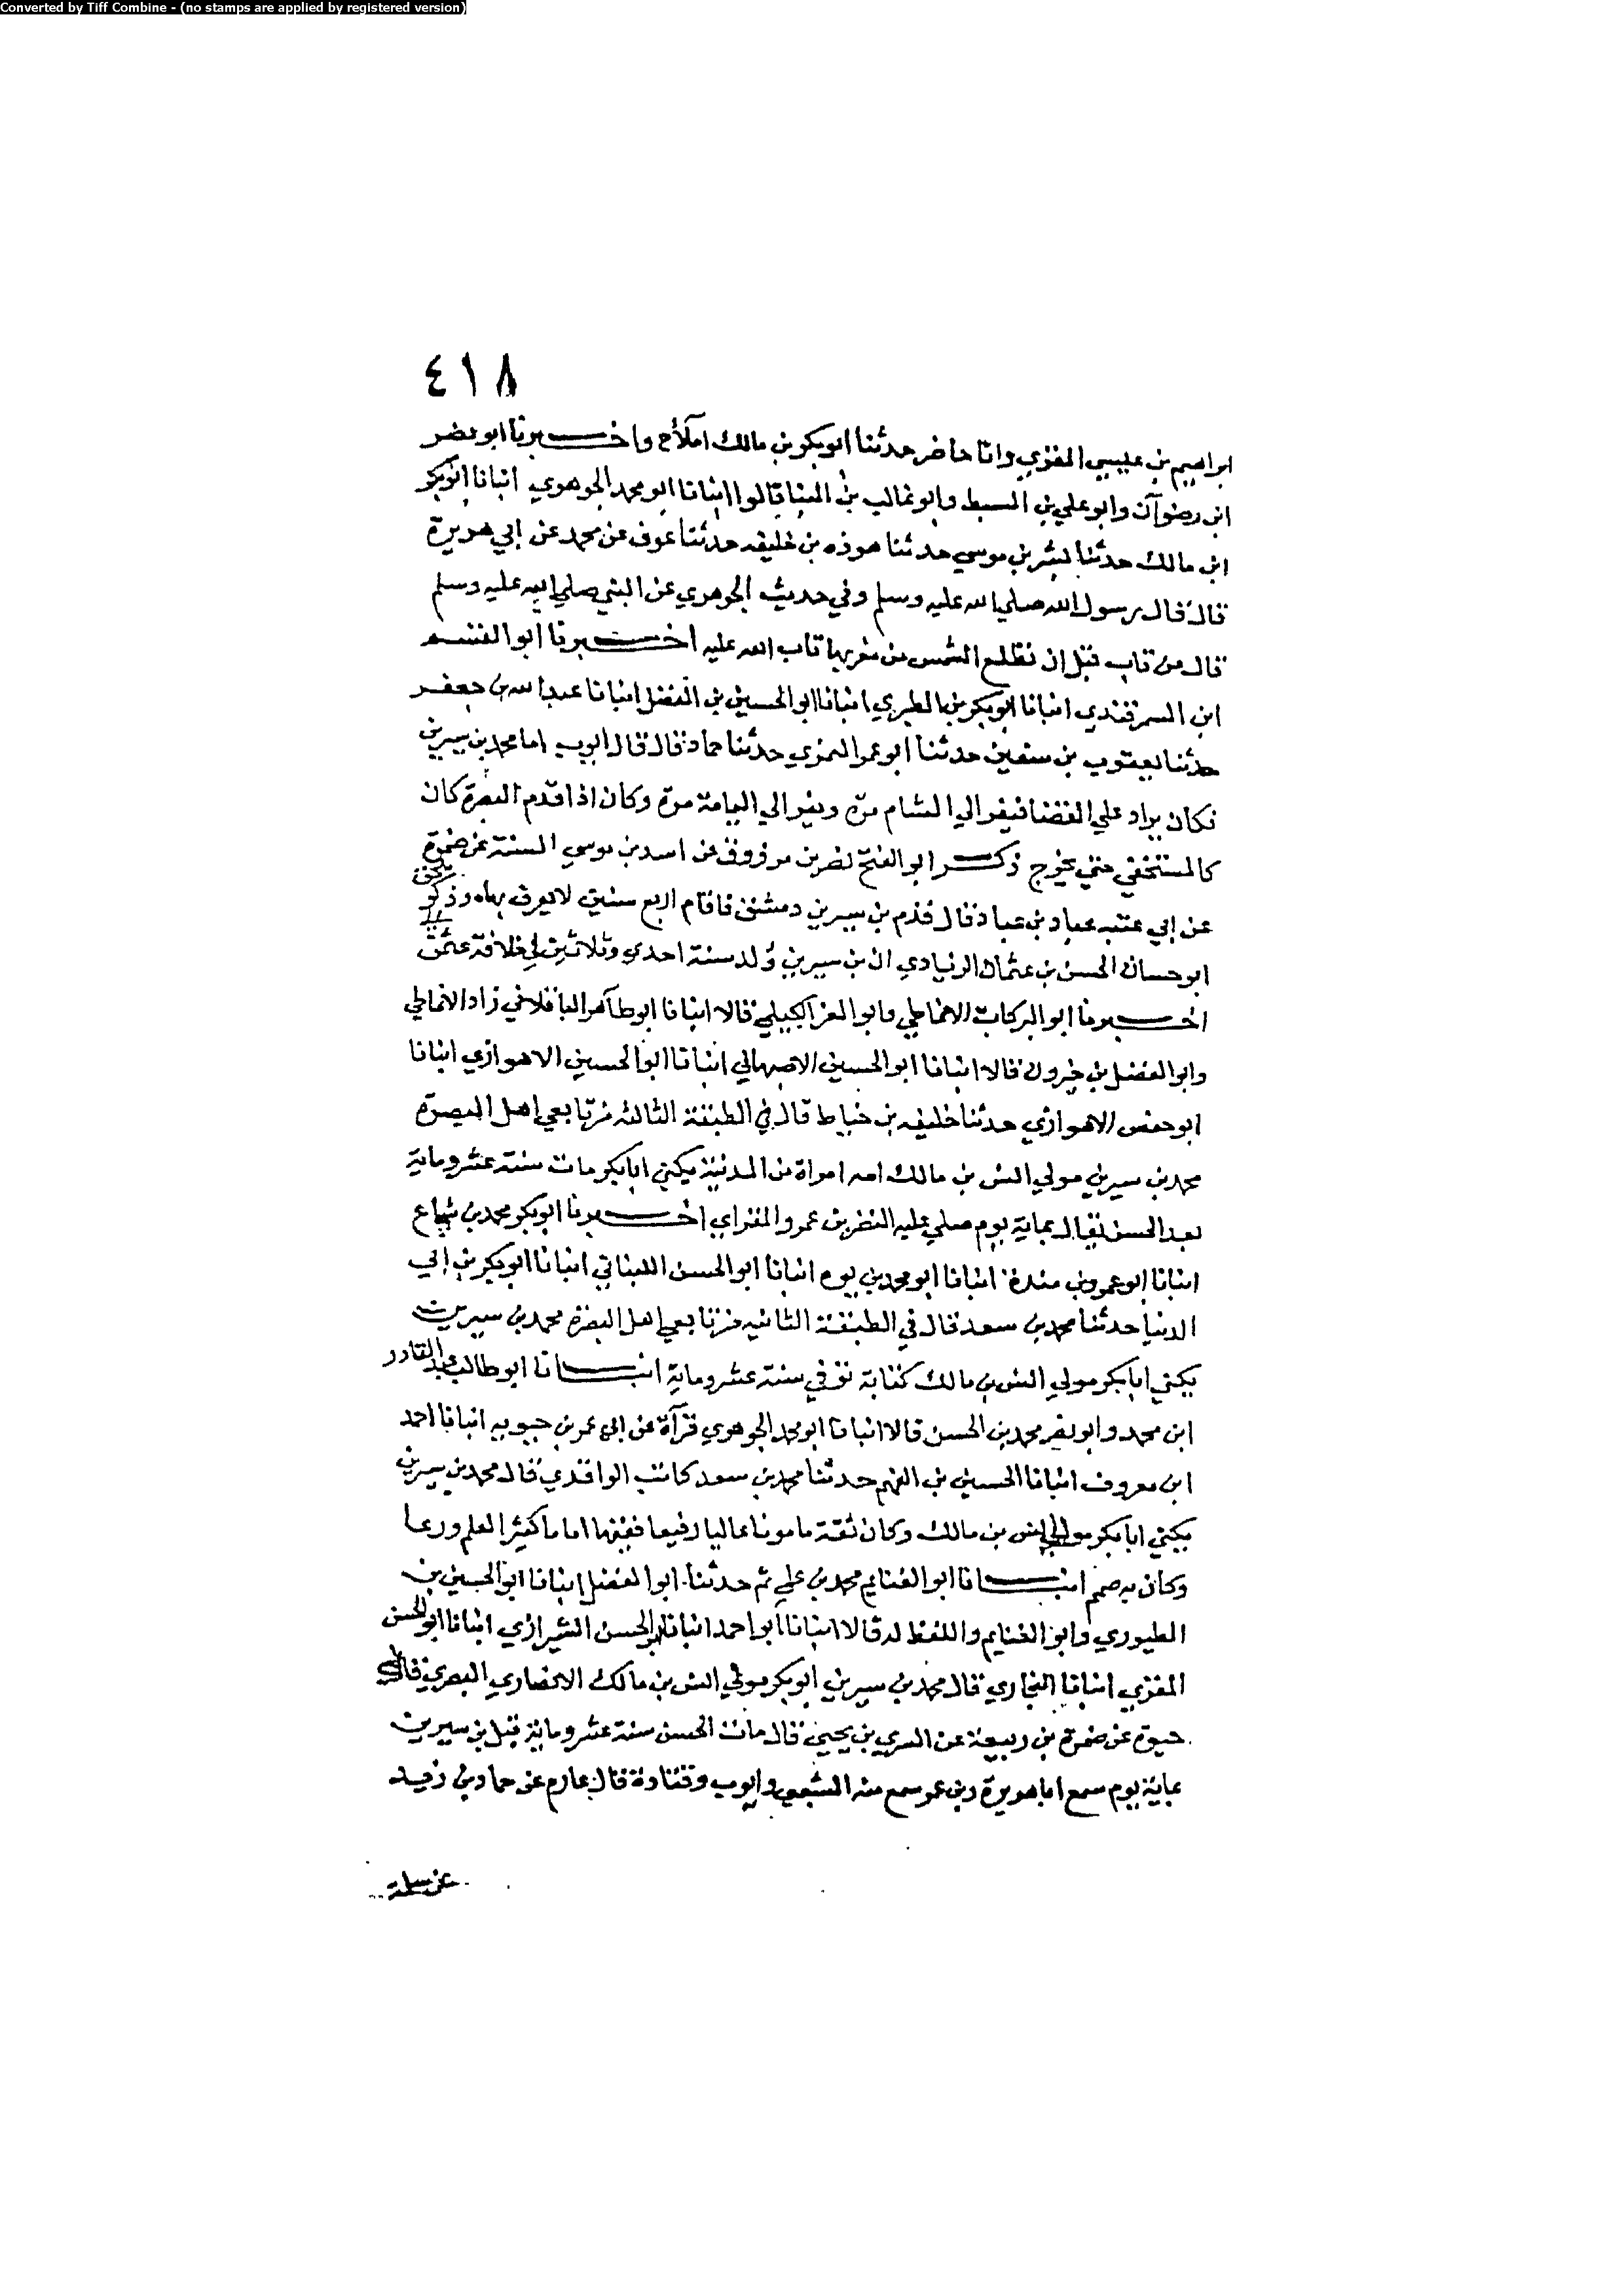 Converted by Tiff Combine - (no stamps are applied by registered version)
٤١٨
ابراهيم بن عيسي المقري وانا حاضر حدثنا ابوبكر بن مالك املاح واخبرنا ابو نصر
ابن رضوآن وابو علي بن السبط وابو غالب بن البنا قالوا انبانا ابو محمد الجوهري انبانا ابوبكر
ابن مالك حدثنا بشر بن موسي حدثنا هوذه بن خليفه حدثنا عوف عن محمد عن ابي هريرة
قال قال رسول الله صلي الله عليه وسلم وفي حديث الجوهري عن النبي صلي الله عليه وسلم
قال من تاب قبل ان تطلع الشمس من مغربها تاب الله عليه اخبرنا ابو القسم
ابن السمرقندي انبانا ابوبكر بن الطبري انبانا ابو الحسين بن الفضل انبانا عبدالله بن جعفر
حدثنا يعقوب بن سفين حدثنا ابو عمر النمري حدثنا حماد قال قال ايوب اما محمد بن سيرين
فكان يراد علي القضا فيفر الي الشام مرة ويفر الي اليمامة مرة وكان اذا قدم البصرة كان
كالمستخفي حتي يخرج ذكر ابو الفتح نصر بن مرزوق عن اسد بن موسي السنة عن ضمرة
عن ابي عتبه عباد بن عباد قال قدم بن سيرين دمشق فاقام اربع سنين لا يعرف بها وذكر
ابو حسان الحسن بن عثمان الزيادي ان بن سيرين ولد سنة احدي وثلاثين في خلافة عثمن
اخبرنا ابو البركات الانماطي وابو العز الكيلي قالا انبانا ابو طآهر الباقلاني زاد الانماطي
وابو الفضل بن خيرون قالا انبانا ابو الحسين الاصبهاني انبانا ابو الحسين الاهوازي انبانا
ابو حفص الاهوازي حدثنا خليفه بن خياط قال في الطبقة الثالثه من تابعي اهل البصرة
محمد بن سيرين مولي انس بن مالك امه امراة من المدنية يكني ابا بكر مات سنة عشر وماية
بعد الحسن يقال بماية يوم صلي عليه النضر بن عمرو المقراي اخبرنا ابو بكر محمد بن شجاع
انبانا ابو عمرو بن مندة انبانا ابو محمد بن يوه انبانا ابو الحسن اللبناني انبانا ابو بكر بن ابي
الدنيا حدثنا محمد بن سعد قال في الطبقة الثانيه من تابعي اهل البصرة محمد بن سيرين
يكني ابا بكر مولي انس بن مالك كتابة توفي سنة عشر وماية انبانا ابو طالب عبد القادر
ابن محمد وابو نصر محمد بن الحسن قالا انبانا ابو محمد الجوهري قرآة عن ابي عمر بن حيويه انبانا احمد
ابن معروف انبانا الحسين بن الفهم حدثنا محمد بن سعد كاتب الواقدي قال محمد بن سيرين
يكني ابا بكر مولي انس بن مالك وكان ثقة مامونا عاليا رفيعا فقيها اماما كثير العلم ورعا
وكان به صمم انبانا ابو الغنايم محمد بن علي ثم حدثنا ابو الفضل انبانا ابو الحسين بن
الطيوري وابو الغنايم واللفظ له قالا انبانا ابو احمد انبانا ابو الحسن الشيرازي انبانا ابو الحسن
المقري انبانا البخاري قال محمد بن سيرين ابو بكر مولي انس بن مالك الانصاري البصري قال
حيوة عن ضمرة بن ربيعة عن السري بن يحيي قال مات الحسن سنة عشر وماية قبل بن سيرين
بماية يوم سمع ابا هريرة وبن عمر سمع منه الشعبي وايوب وقتادة قال عارم عن حماد بن زيد
عن سلمة